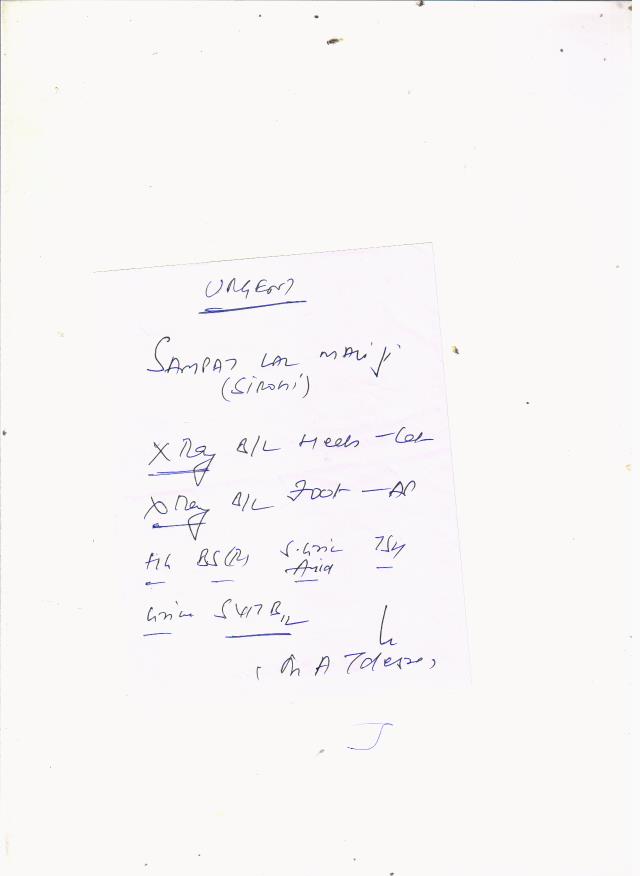 URGENT
SAMPAT LAL MALI ji
(SIROHI)
X Ray B/L Heels - Lat
X Ray B/L Foot - AP
Hb BS(R) S. Uric Acid TSH
Urine S VIT B12
A T
J